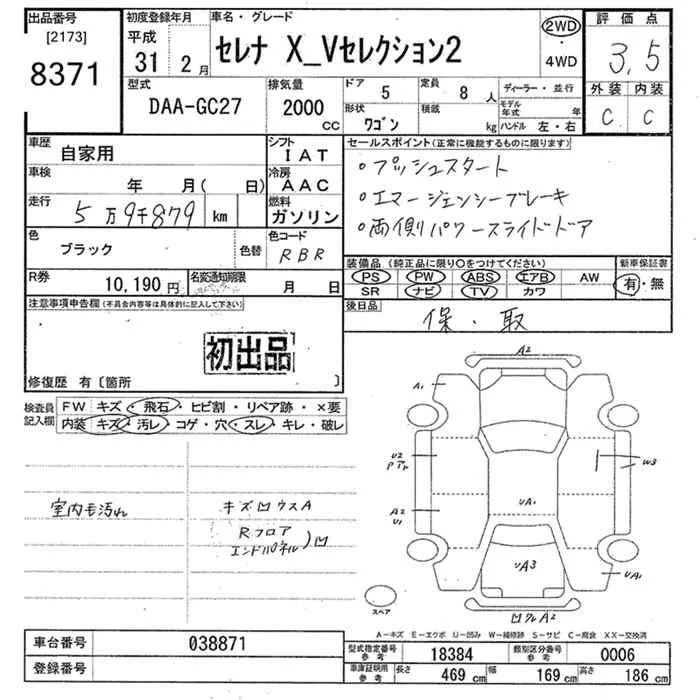 出品番号 初度登録年月 車名・グレード 評価点
[2173] 平成
8371 31 2月 セレナ X_Vセレクション2 2WD・4WD 3.5
型式 排気量 ドア 5 定員 8人 ディーラー・並行 外装 内装
DAA-GC27 2000cc 形状 ワゴン 積載 kg モデル年式 年 C C
ハンドル 左・右
車歴 自家用 シフト IAT セールスポイント(正常に機能するものに限ります)
車検 年 月( 日) 冷房 AAC ・プッシュスタート
走行 5万9千879 km 燃料 ガソリン ・エマージェンシーブレーキ
・両側パワースライドドア
色 ブラック 色替 色コード RBR
装備品(純正品に限り○をつけてください) 新車保証書
R券 10,190円 名変通知期限 月 日 PS PW ABS エアB AW 有・無
SR ナビ TV カワ
注意事項申告欄(不具合内容等は具体的に記入して下さい) 後日品 保・取
初出品
修復歴 有〔箇所 〕
検査員記入欄 FW キズ・飛石・ヒビ割・リペア跡・×要
内装 キズ・汚レ・コゲ・穴・スレ・キレ・破レ
A2
A1
U2
W3
室内モ汚れ キズ凹ウスA A2 UA1
Rフロア U1
エンドパネル)凹
UA3 UA1
スペア 凹 A2
A-キズ E-エクボ U-凹み W-補修跡 S-サビ C-腐食 XX-交換済
車台番号 038871 型式指定番号 参考 18384 類別区分番号 参考 0006
登録番号 車庫証明用 参考 長さ 469cm 幅 169cm 高さ 186cm